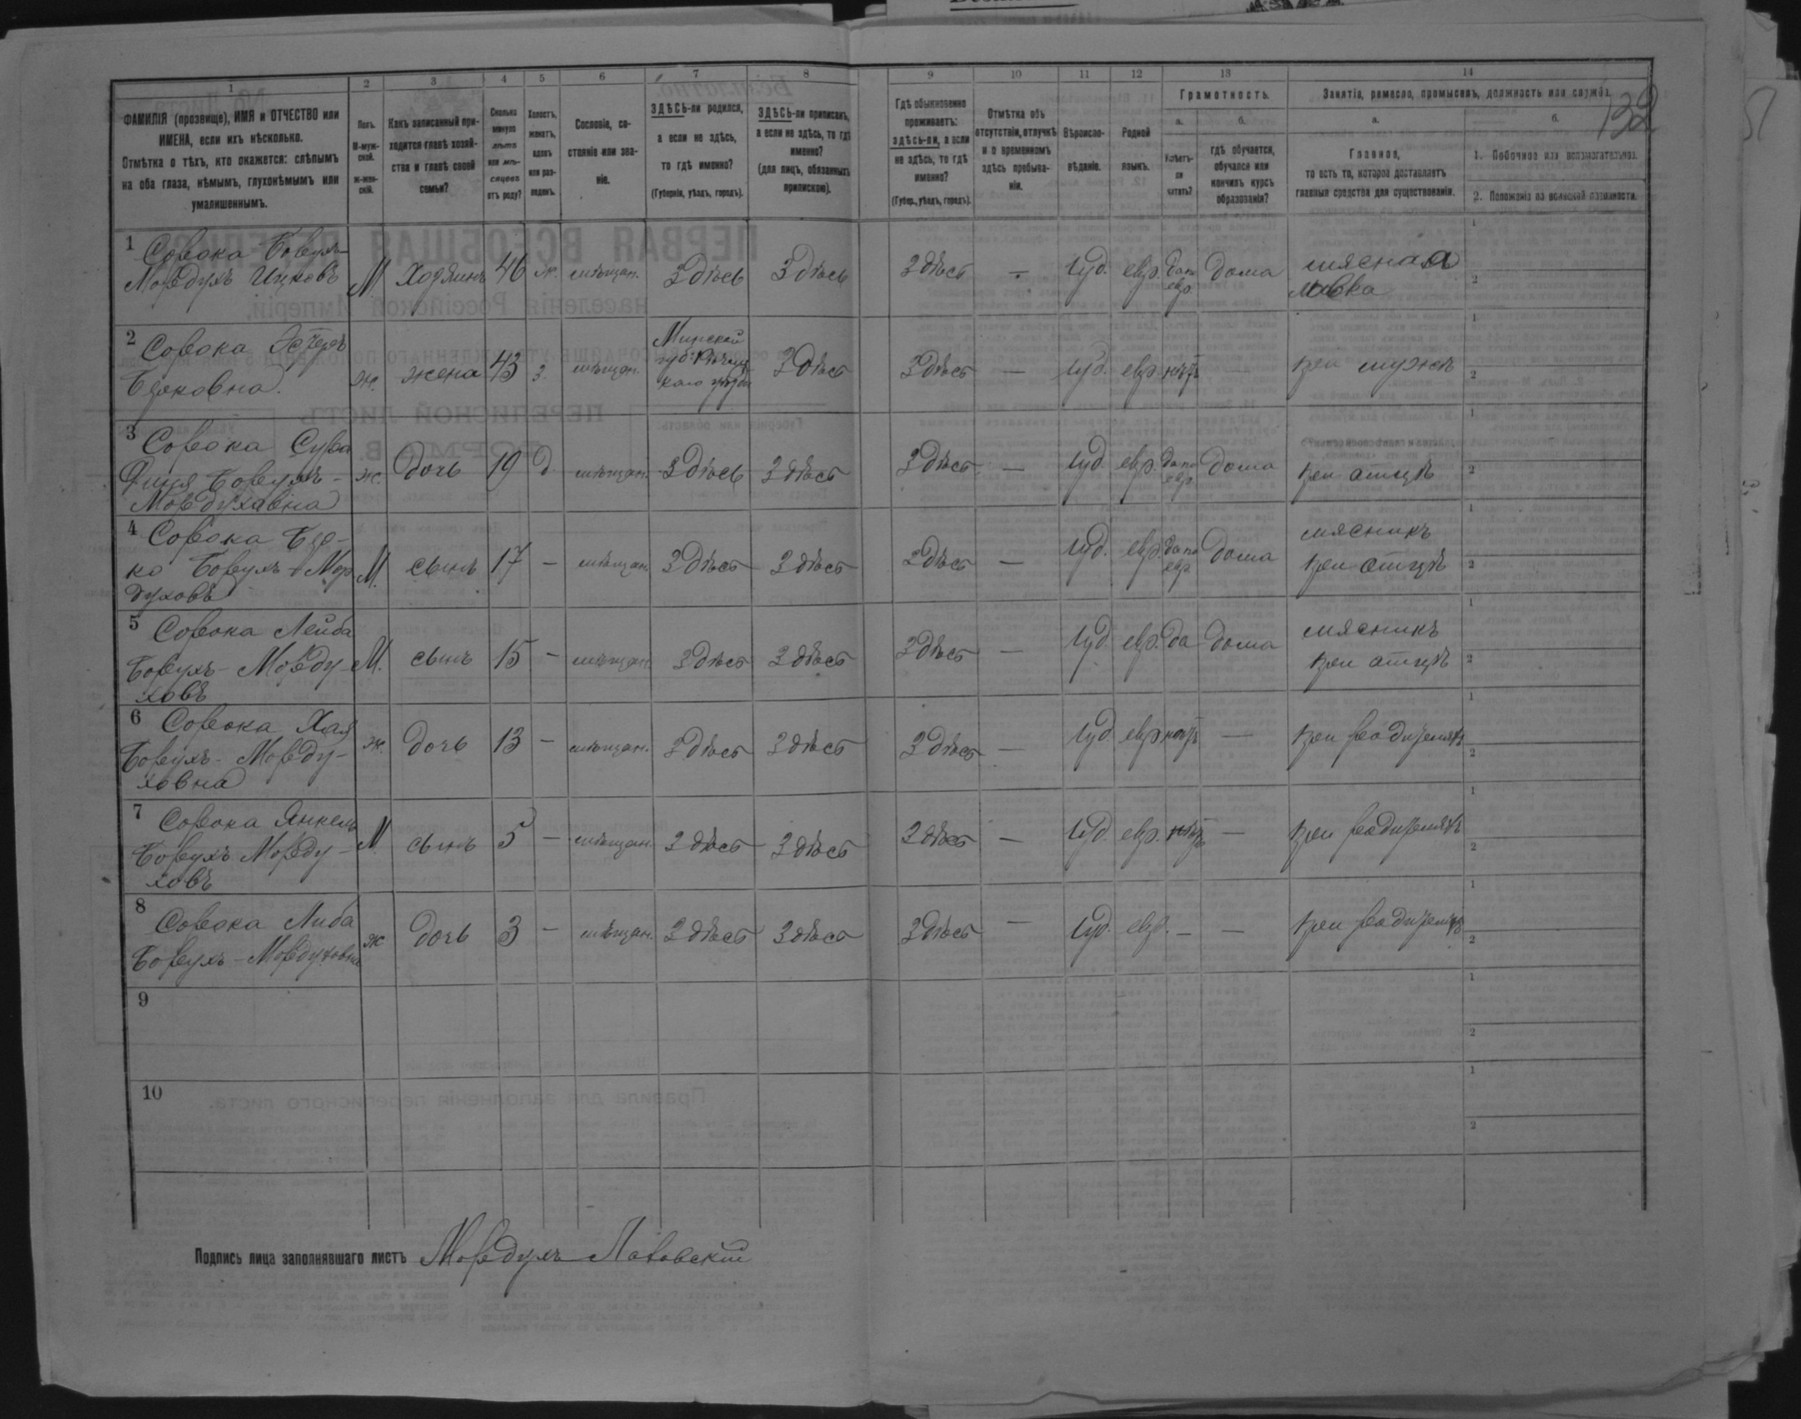 1 2 3 4 5 6 7 8 9 10 11 12 13 14
ФАМИЛІЯ (прозвище), ИМЯ и ОТЧЕСТВО или
ИМЕНА, если ихъ нѣсколько.
Отмѣтка о тѣхъ, кто окажется: слѣпымъ
на оба глаза, нѣмымъ, глухонѣмымъ или
умалишеннымъ.
Полъ.
М-муж-
ской.
ж-жен-
скій.
Какъ записанный при-
ходится главѣ хозяй-
ства и главѣ своей
семьи?
Сколько
минуло
лѣтъ
или мѣ-
сяцевъ
отъ роду?
Холостъ,
женатъ,
вдовъ
или раз-
веденъ.
Сословіе, со-
стояніе или зва-
ніе.
ЗДѢСЬ-ли родился,
а если не здѣсь,
то гдѣ именно?
(Губернія, уѣздъ, городъ).
ЗДѢСЬ-ли приписанъ,
а если не здѣсь, то гдѣ
именно?
(для лицъ, обязанныхъ
припискою).
Гдѣ обыкновенно
проживаетъ:
здѣсь-ли, а если
не здѣсь, то гдѣ
именно?
(Губер., уѣздъ, городъ).
Отмѣтка объ
отсутствіи, отлучкѣ
и о временномъ
здѣсь пребыва-
ніи.
Вѣроиспо-
вѣданіе.
Родной
языкъ.
Грамотность.
а.
Умѣетъ-
ли
читать?
б.
гдѣ обучается,
обучался или
кончилъ курсъ
образованія?
Занятія, ремесло, промыселъ, должность или служба.
а.
Главное,
то есть то, которое доставляетъ
главныя средства для существованія.
б.
1. Побочное или вспомогательное.
2. Положеніе по воинской повинности.
132
1 Сорока Борухъ
Мордухъ Ицковъ М Хозяинъ 46 ж. мѣщан. Здѣсь Здѣсь Здѣсь — Іуд. евр. да по евр. дома мясная лавка
2 Сорока Эстеръ
Берковна. ж. жена 43 з. мѣщан. Минской губ. Здѣсь Здѣсь — Іуд. евр. нѣтъ — при мужѣ
3 Сорока Сура
Борухъ-
Мордуховна ж. дочь 19 д мѣщан. Здѣсь Здѣсь Здѣсь — Іуд. евр. да по евр. дома при отцѣ
4 Сорока Бер-
ко Борухъ-Мор
духовъ М. сынъ 17 — мѣщан. Здѣсь Здѣсь Здѣсь — Іуд. евр. да по евр. дома мясникъ при отцѣ
5 Сорока Лейба
Борухъ-Морду-
ховъ М. сынъ 15 — мѣщан. Здѣсь Здѣсь Здѣсь — Іуд. евр. да дома мясникъ при отцѣ
6 Сорока Хая
Борухъ-Морду-
ховна ж. дочь 13 — мѣщан. Здѣсь Здѣсь Здѣсь — Іуд евр нѣтъ — при родителяхъ
7 Сорока Янкель
Борухъ Морду-
ховъ М. сынъ 5 — мѣщан. Здѣсь Здѣсь Здѣсь — Іуд. евр. нѣтъ — при родителяхъ
8 Сорока Либа
Борухъ-Мордуховна ж дочь 3 — мѣщан. Здѣсь Здѣсь Здѣсь — Іуд. евр. — — при родителяхъ
9
10
Подпись лица заполнявшаго листъ Мордухъ